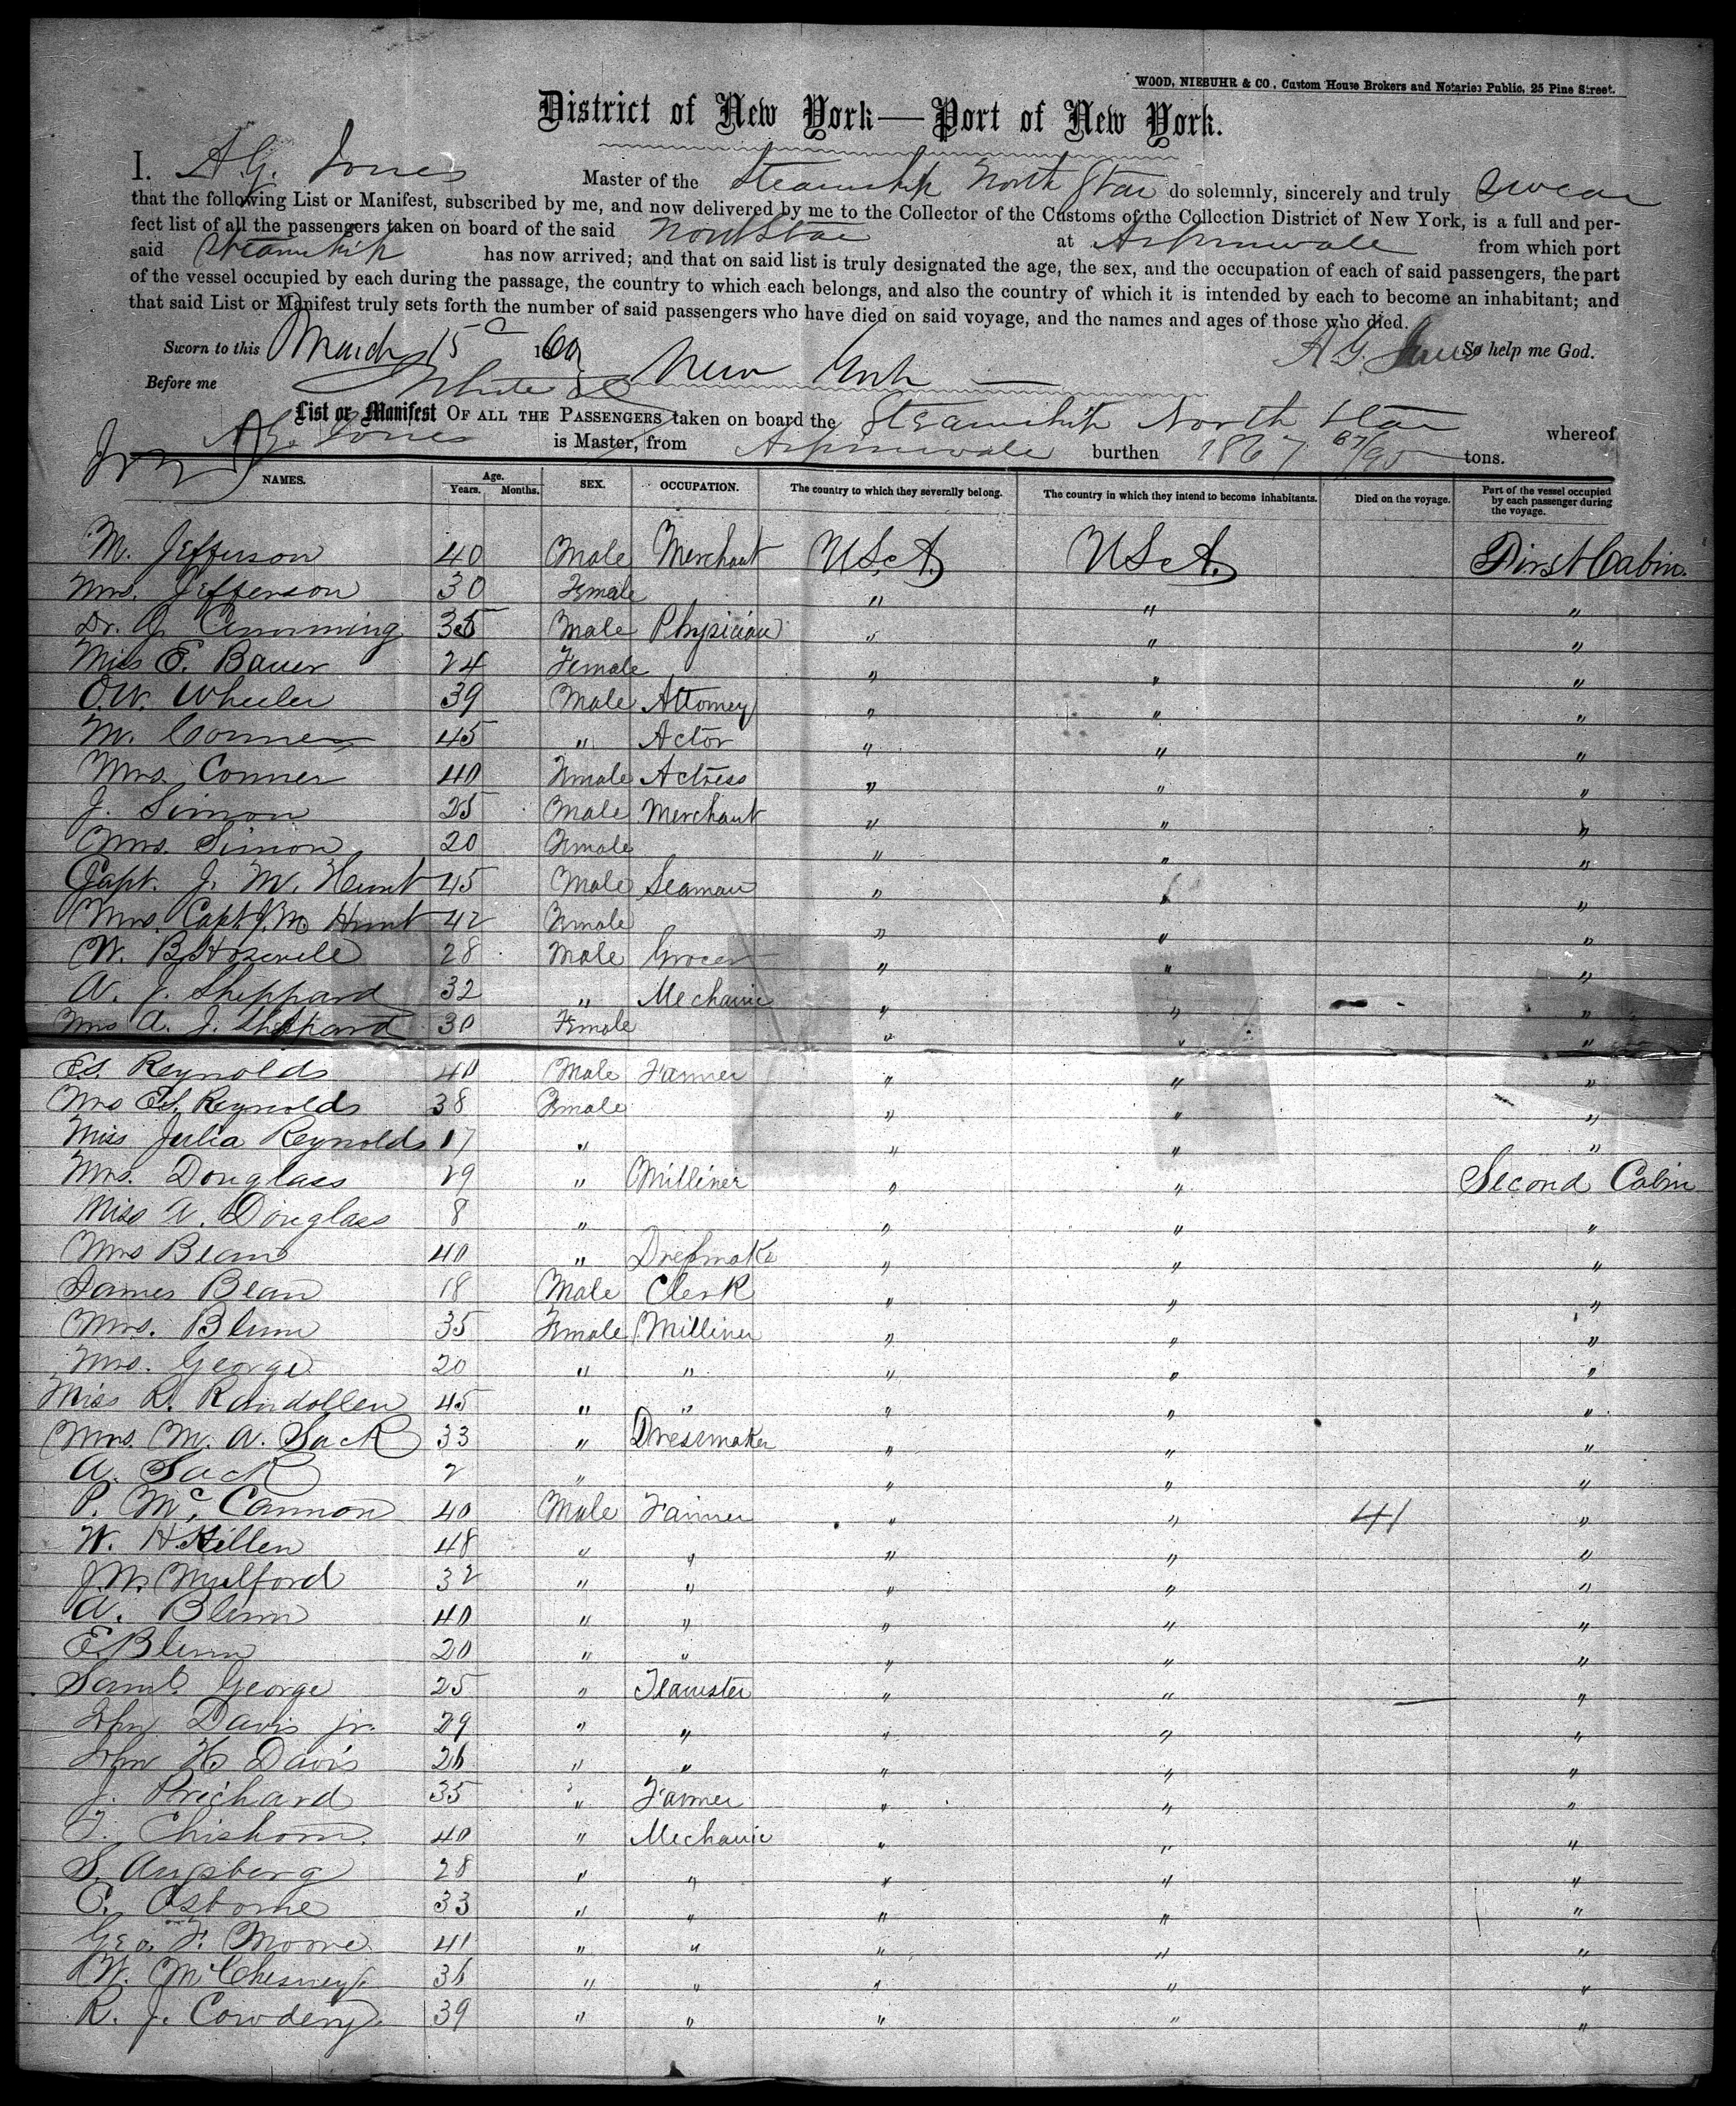 WOOD, NIEBUHR & CO., Custom House Brokers and Notaries Public, 25 Pine Street.
District of New York—Port of New York.
I. A. G. Jones Master of the Steamship North Star do solemnly, sincerely and truly swear
that the following List or Manifest, subscribed by me, and now delivered by me to the Collector of the Customs of the Collection District of New York, is a full and per-
fect list of all the passengers taken on board of the said North Star at Aspinwale from which port
said Steamship has now arrived; and that on said list is truly designated the age, the sex, and the occupation of each of said passengers, the part
of the vessel occupied by each during the passage, the country to which each belongs, and also the country of which it is intended by each to become an inhabitant; and
that said List or Manifest truly sets forth the number of said passengers who have died on said voyage, and the names and ages of those who died.
Sworn to this March 15 1860 A. G. Jones So help me God.
Before me White New York
List or Manifest OF ALL THE PASSENGERS taken on board the Steamship North Star whereof
A. G. Jones is Master, from Aspinwale burthen 1867 67/95 tons.
NAMES. Age. Years. Months. SEX. OCCUPATION. The country to which they severally belong. The country in which they intend to become inhabitants. Died on the voyage. Part of the vessel occupied by each passenger during the voyage.
M. Jefferson 40 Male Merchant U.S.A. U.S.A. First Cabin.
Mrs. Jefferson 30 Female " " "
Dr. J. Cumming 35 Male Physician " " "
Miss E. Bauer 24 Female " " "
O.W. Wheeler 39 Male Attorney " " "
M. Conner 45 " Actor " " "
Mrs. Conner 40 Female Actress " " "
J. Simon 25 Male Merchant " " "
Mrs. Simon 20 Female " " "
Capt. J. M. Hunt 45 Male Seaman " " "
Mrs. Capt. J. M. Hunt 42 Female " " "
W. B. 28 Male Grocer " " "
A. J. Sheppard 32 " Mechanic " " "
Mrs A. J. Sheppard 30 Female " " "
Ed. Reynolds 40 Male Farmer " " "
Mrs Ed. Reynolds 38 Female " " "
Miss Julia Reynolds 17 " " " "
Mrs. Douglass 29 " Milliner " " Second Cabin
Miss A. Douglass 8 " " " "
Mrs Bean 40 " Dressmake " " "
James Bean 18 Male Clerk " " "
Mrs. Blinn 35 Female Milliner " " "
Mrs. George 20 " " " " "
Miss R. Randollen 45 " " " " "
Mrs. M. A. Sack 33 " Dressmaker " " "
A. Sack 2 " " " "
P. McCannon 40 Male Farmer " " 41 "
W. H. Killen 48 " " " " "
J.W. Mulford 32 " " " " "
A. Blinn 40 " " " " "
E. Blinn 20 " " " " "
Saml. George 25 " Teamster " " "
John Davis jr. 29 " " " " "
John H. Davis 26 " " " " "
J. Prichard 35 " Farmer " " "
T. Chishom. 40 " Mechanic " " "
S. Augsberg 28 " " " " "
C. Osborne 33 " " " " "
Geo. F. Moore 41 " " " " "
W. McChesney 36 " " " " "
R. J. Cowdery 39 " " " " "